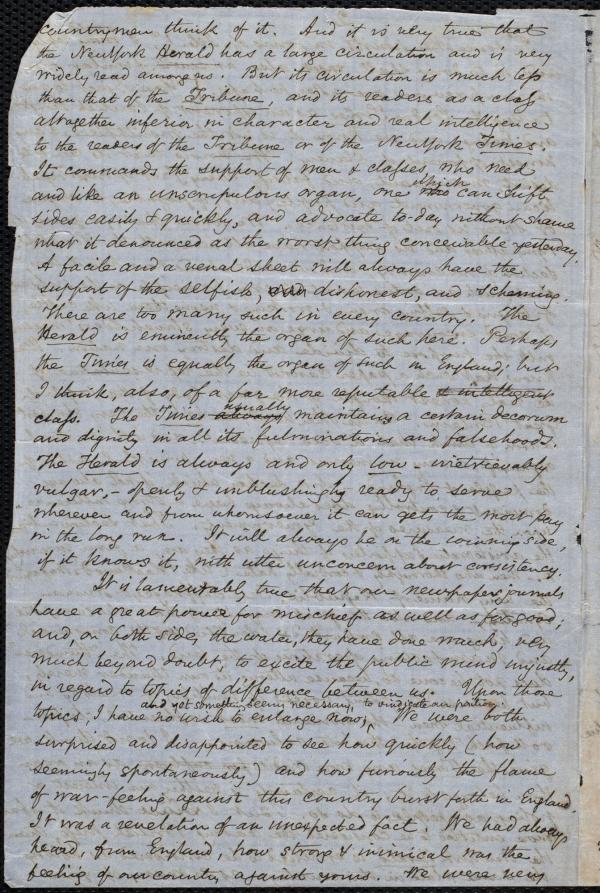 countrymen think of it. And it is very true that
the New York Herald has a large circulation and is very
widely read among us. But its circulation is much less
than that of the Tribune, and its readers as a class
altogether inferior in character and real intelligence
to the readers of the Tribune or of the New York Times.
It commands the support of men & classes who need
and like an unscrupulous organ, one who which can shift
sides easily & quickly, and advocate to-day without shame
what it denounced as the worst thing conceivable yesterday.
A facile and a venal sheet will always have the
support of the selfish, and dishonest, and scheming.
There are too many such in every country. The
Herald is eminently the organ of such here. Perhaps
the Times is equally the organ of such in England; but
I think, also, of a far more reputable & intelligent
class. The Times always usually maintains a certain decorum
and dignity in all its fulminations and falsehoods.
The Herald is always and only low – irretrievably
vulgar, – openly & unblushingly ready to serve
wherever and from whomsoever it can gets the most pay
in the long run. It will always be on the winning side,
if it knows it, with utter unconcern about consistency.
It is lamentably true that our newspapers journals
have a great power for mischief as well as for good;
and, on both sides the water, they have done much, very
much beyond doubt, to excite the public mind unjustly,
in regard to topics of difference between us. Upon those
and yet something seems necessary, to vindicate our position
topics, I have no wish to enlarge now; We were both
surprised and disappointed to see how quickly (how
seemingly spontaneously) and how furiously the flame
of war-feeling against this country burst forth in England.
It was a revelation of an unexpected fact. We had always
heard, from England, how strong & inimical was the
feeling of our country against yours. We were very